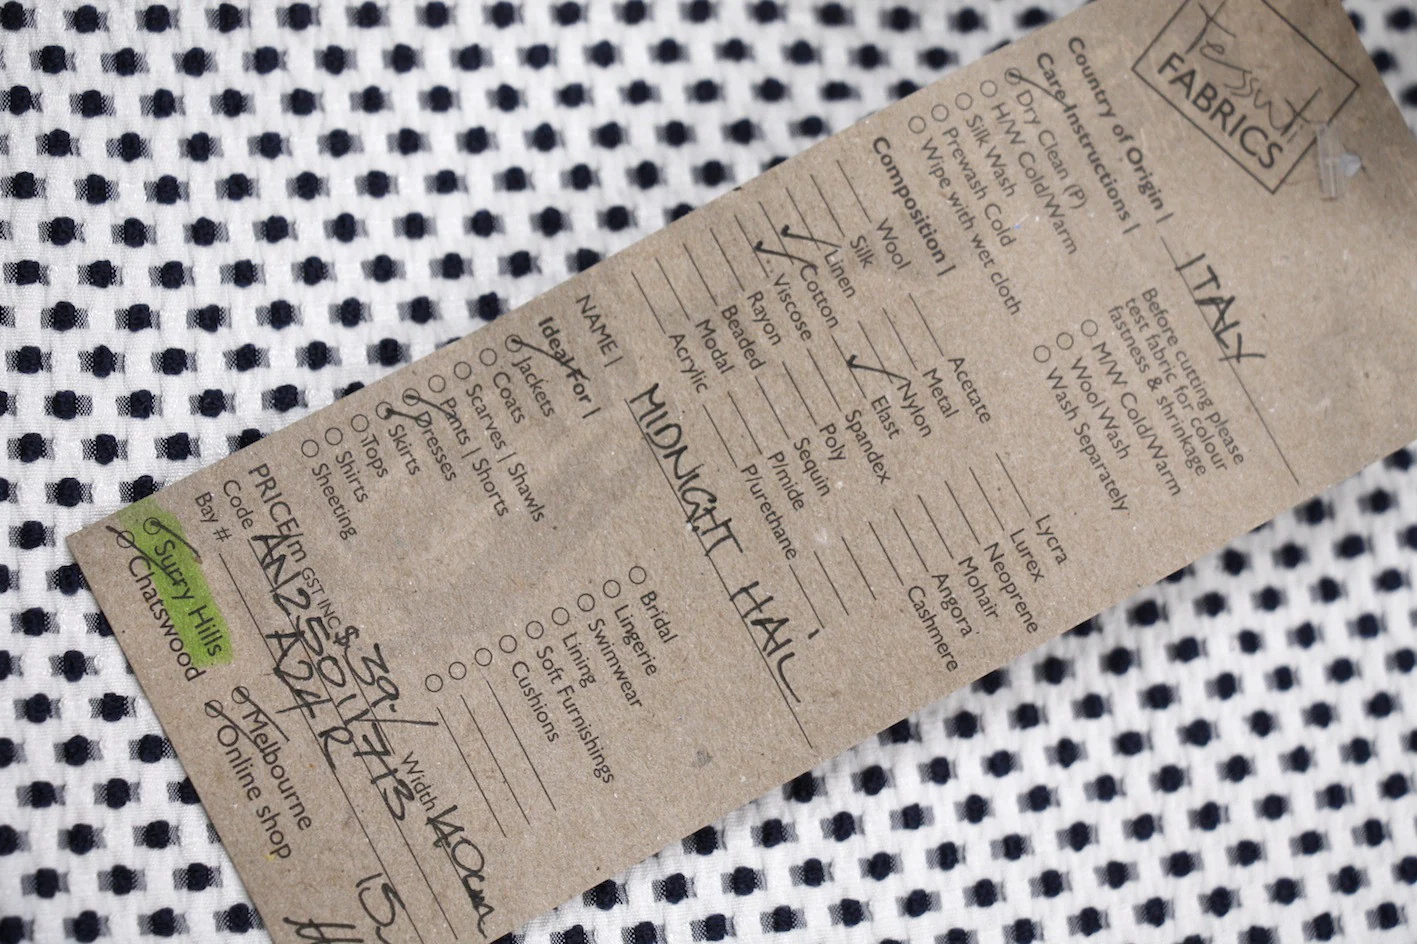 Tessuti
FABRICS
Country of Origin | ITALY
Care Instructions |
Dry Clean (P)
H/W Cold/Warm
Silk Wash
Prewash Cold
Wipe with wet cloth
Before cutting please
test fabric for colour
fastness & shrinkage
M/W Cold/Warm
Wool Wash
Wash Separately
Composition |
Wool
Silk
Linen
Cotton
Viscose
Rayon
Beaded
Modal
Acrylic
Acetate
Metal
Nylon
Elast
Spandex
Poly
Sequin
P/mide
P/urethane
Lycra
Lurex
Neoprene
Mohair
Angora
Cashmere
NAME | MIDNIGHT HAIL
Ideal For |
Jackets
Coats
Scarves | Shawls
Pants | Shorts
Dresses
Skirts
Tops
Shirts
Sheeting
Bridal
Lingerie
Swimwear
Lining
Soft Furnishings
Cushions
PRICE/m GST INC $39. Width 140cm
Code AN25011/713
Bay # A24 R
Surry Hills
Chatswood
Melbourne
Online shop